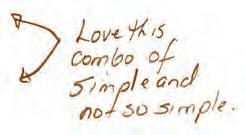 Love this
combo of
simple and
not so simple.